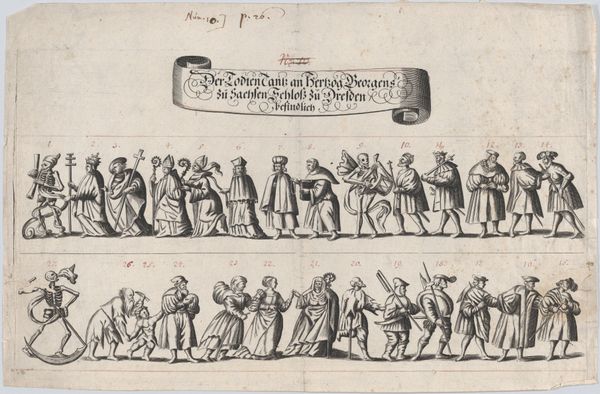 Num. 10.] p. 26.
Der Todten Tantz an Hertzog Georgens
zu Sachsen Schloß zu Dresden
befindlich.
1. 2. 3. 4. 5. 6. 7. 8. 9. 10. 11. 12. 13. 14.
27. 26. 25. 24. 23. 22. 21. 20. 19. 18. 17. 16. 15.